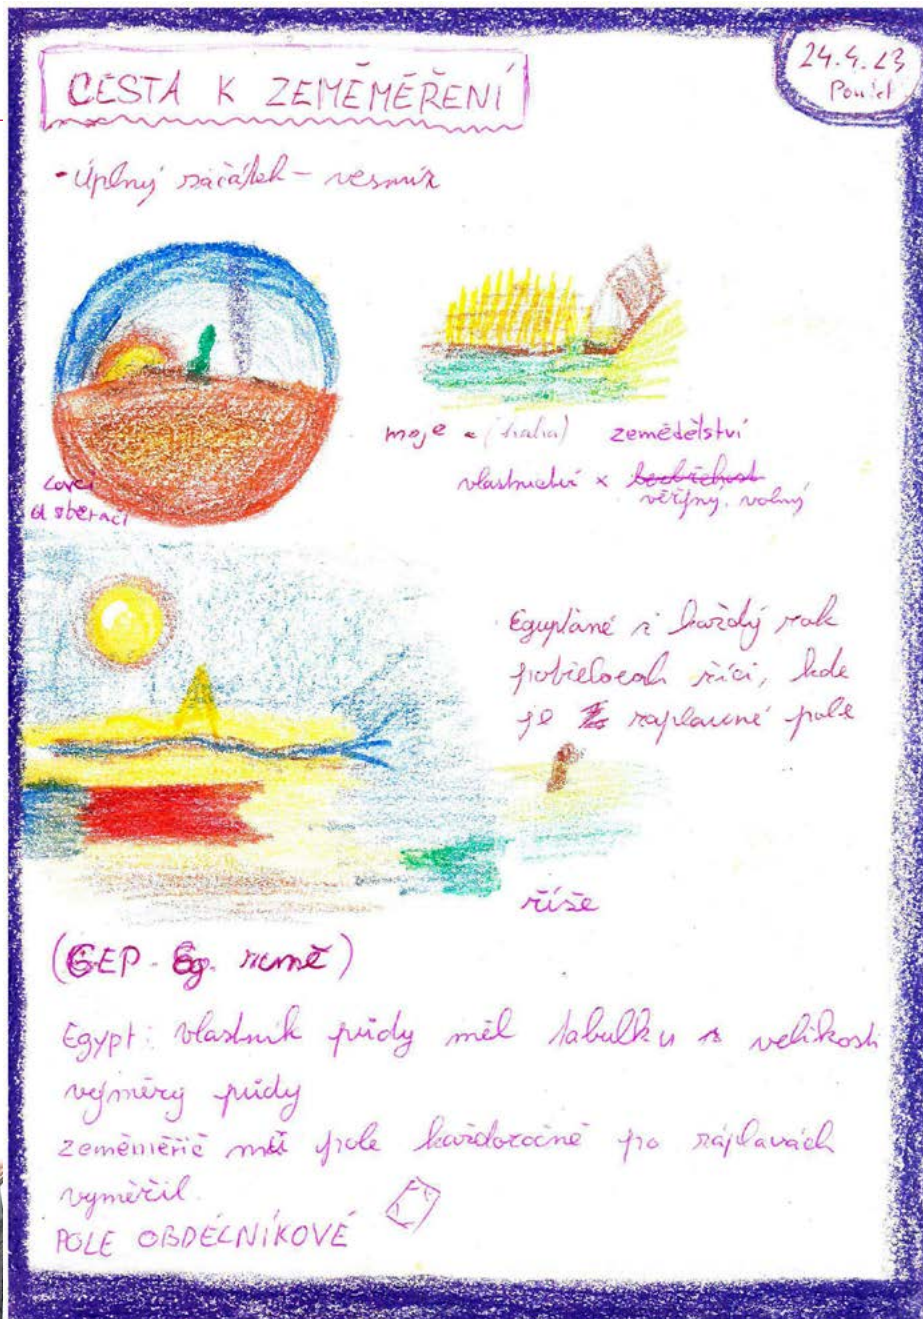 CESTA K ZEMĚMĚŘENÍ
24.4.23
• Úplný začátek – vesmír
moje zemědělství
vlastnictví ×
veřejný. volný
Lovci
a sběrači
Egypťané si každý rok
potřebovali říci, kde
je zaplavné pole
říše
(GEP - Eg. země)
Egypt: vlastník půdy měl tabulku s velikostí
výměry půdy
zeměměřič pole každoročně po záplavách
vyměřil.
POLE OBDÉLNÍKOVÉ